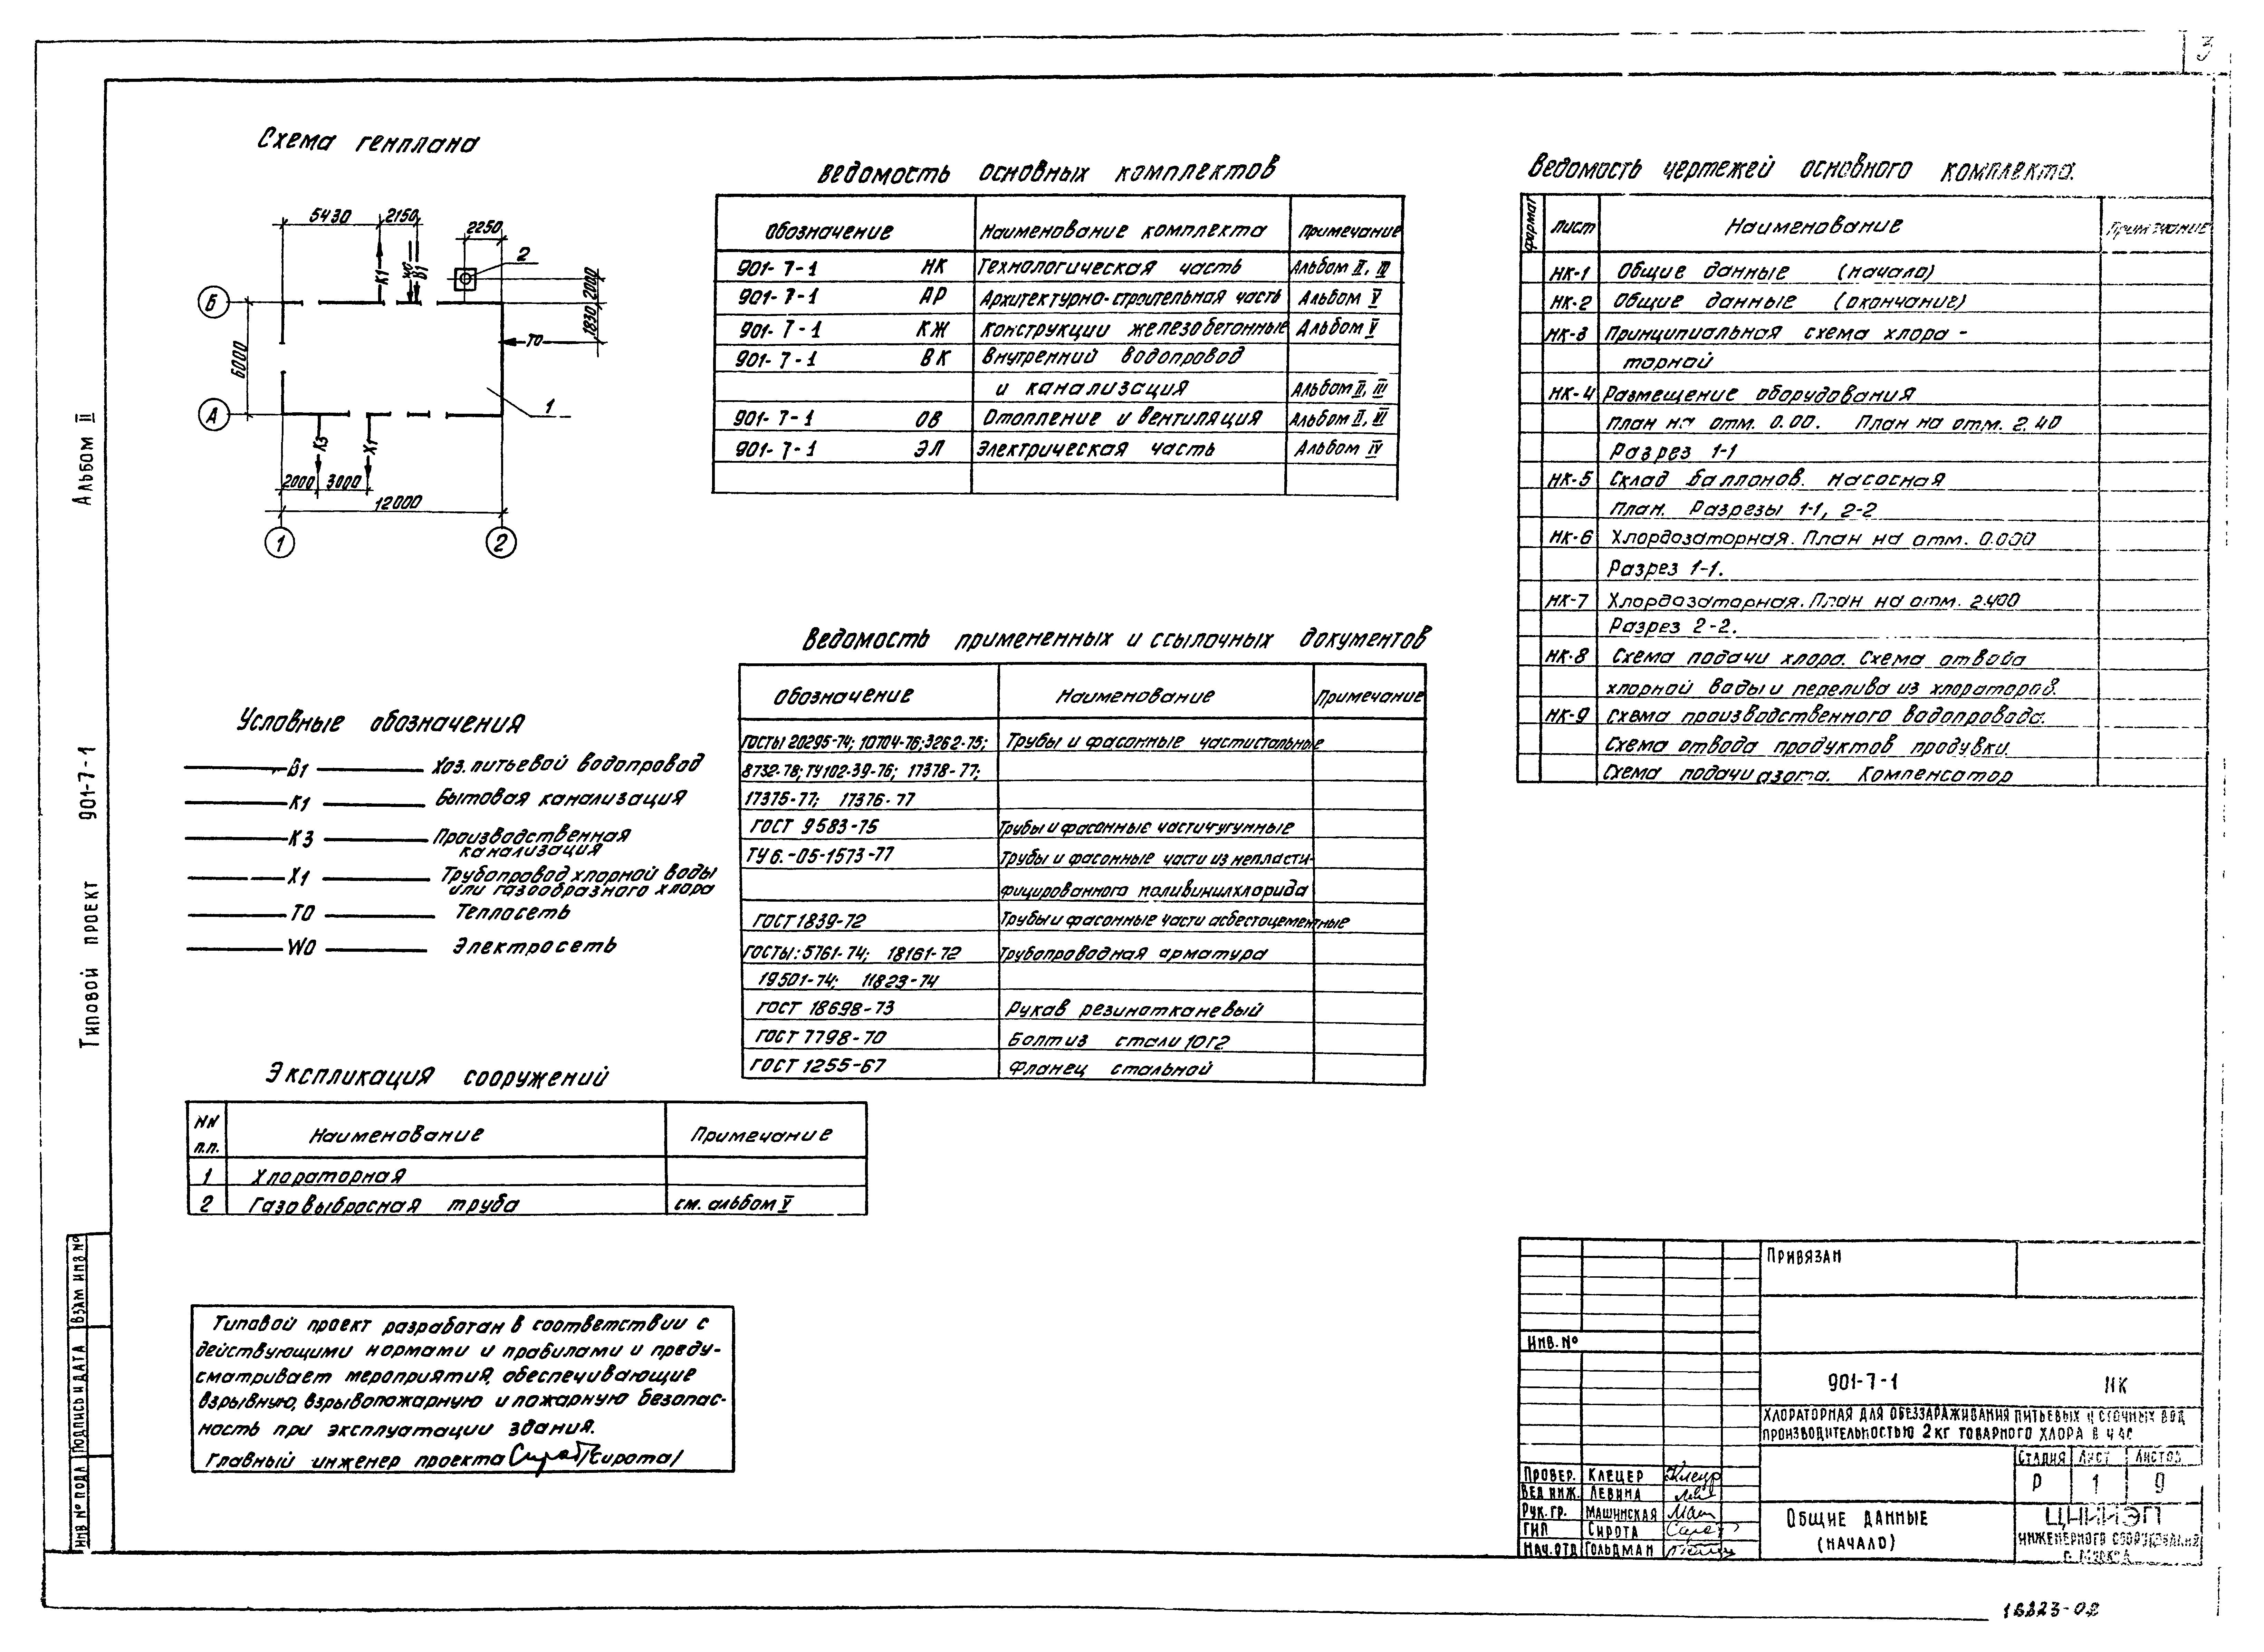 3
Схема генплана
5430
2150
2250
К1
W0
В1
2
2000
1830
Б
Т0
6000
А
1
К3
Х1
2000
3000
12000
1
2
Ведомость основных комплектов
Обозначение Наименование комплекта Примечание
901-7-1 НК Технологическая часть Альбом II, III
901-7-1 АР Архитектурно-строительная часть Альбом V
901-7-1 КЖ Конструкции железобетонные Альбом V
901-7-1 ВК Внутренний водопровод
и канализация Альбом II, III
901-7-1 ОВ Отопление и вентиляция Альбом II, VI
901-7-1 ЭЛ Электрическая часть Альбом IV
Ведомость чертежей основного комплекта.
Формат Лист Наименование Примечание
НК-1 Общие данные (начало)
НК-2 Общие данные (окончание)
НК-3 Принципиальная схема хлора-
торной
НК-4 Размещение оборудования
План на отм. 0.00. План на отм. 2.40
Разрез 1-1
НК-5 Склад баллонов. Насосная
План. Разрезы 1-1, 2-2
НК-6 Хлордозаторная. План на отм. 0.000
Разрез 1-1.
НК-7 Хлордозаторная. План на отм. 2.400
Разрез 2-2.
НК-8 Схема подачи хлора. Схема отвода
хлорной воды и перелива из хлораторов.
НК-9 Схема производственного водопровода.
Схема отвода продуктов продувки.
Схема подачи азота. Компенсатор
Ведомость примененных и ссылочных документов
Обозначение Наименование Примечание
ГОСТы 20295-74; 10704-76; 3262-75; Трубы и фасонные части стальные
8732-78; ТУ102-39-76; 17378-77;
17375-77; 17376-77
ГОСТ 9583-75 Трубы и фасонные части чугунные
ТУ 6.-05-1573-77 Трубы и фасонные части из непласти-
фицированного поливинилхлорида
ГОСТ 1839-72 Трубы и фасонные части асбестоцементные
ГОСТы: 5761-74; 18161-72 Трубопроводная арматура
19501-74; 11823-74
ГОСТ 18698-73 Рукав резинотканевый
ГОСТ 7798-70 Болт из стали 10Г2
ГОСТ 1255-67 Фланец стальной
Условные обозначения
В1 Хоз. питьевой водопровод
К1 Бытовая канализация
К3 Производственная
канализация
Х1 Трубопровод хлорной воды
или газообразного хлора
Т0 Теплосеть
W0 Электросеть
Экспликация сооружений
NN
п.п. Наименование Примечание
1 Хлораторная
2 Газовыбросная труба см. альбом V
Типовой проект разработан в соответствии с
действующими нормами и правилами и преду-
сматривает мероприятия, обеспечивающие
взрывную, взрывопожарную и пожарную безопас-
ность при эксплуатации здания.
Главный инженер проекта /Сирота/
Альбом II
Типовой проект 901-7-1
Взам инв N°
Подпись и дата
Инв N° подл
Привязан
Инв. N°
901-7-1 НК
Хлораторная для обеззараживания питьевых и сточных вод
производительностью 2 кг товарного хлора в час
Стадия Лист Листов
Р 1 9
Провер. Клецер
Вед инж. Левина
Рук. гр. Машинская
ГИП Сирота
Нач. отд Гольдман
Общие данные
(начало)
ЦНИИЭП
инженерного оборудования
г. Москва
16823-02